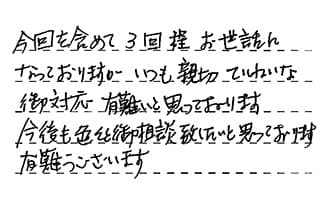 今回を含めて3回程お世話に
なっておりますが いつも親切 ていねいな
御対応 有難いと思っております
今後も色々御相談致したいと思っております
有難うございます